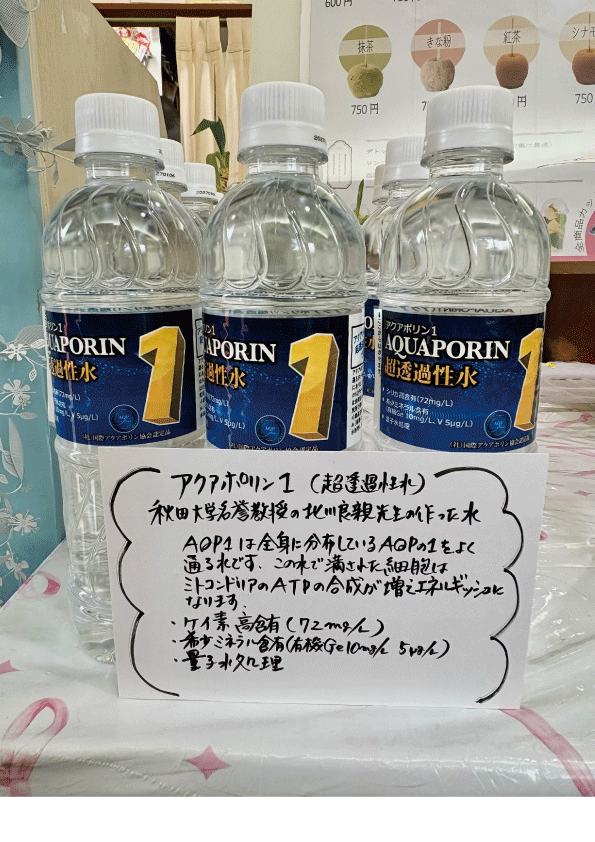 600円
抹茶
きな粉
紅茶
シナモ
750円
750円
750円
750円
全商品カシ
アクアポリン1
AQUAPORIN
超透過性水
1
シリカ高含有(72mg/L)
希少ミネラル含有
(有機Ge 10mg/L、V 5μg/L)
量子水処理
(社)国際アクアポリン協会認定品
アクアポリン1(超透過性水)
秋田大学名誉教授の北川良親先生の作った水
AQP1は全身に分布しているAQPの1をよく
通る水です、この水で満された細胞は
ミトコンドリアのATPの合成が増えエネルギッシュに
なります.
・ケイ素高含有(72mg/L)
・希少ミネラル含有(有機Ge10mg/L 5μg/L)
・量子水処理